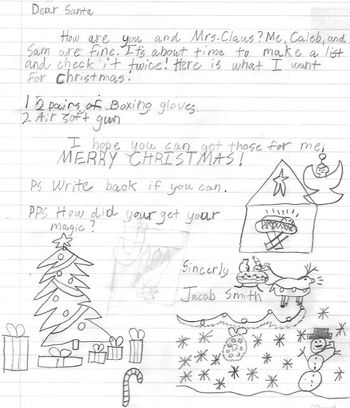 Dear Santa
How are you and Mrs. Claus? Me, Caleb, and
Sam are fine. It's about time to make a list
and check it twice! Here is what I want
for Christmas:
1 2 pairs of Boxing gloves.
2. Air soft gun
I hope you can get those for me,
MERRY CHRISTMAS!
Ps Write back if you can.
PPS How did your get your
magic?
Sincerly
Jacob Smith